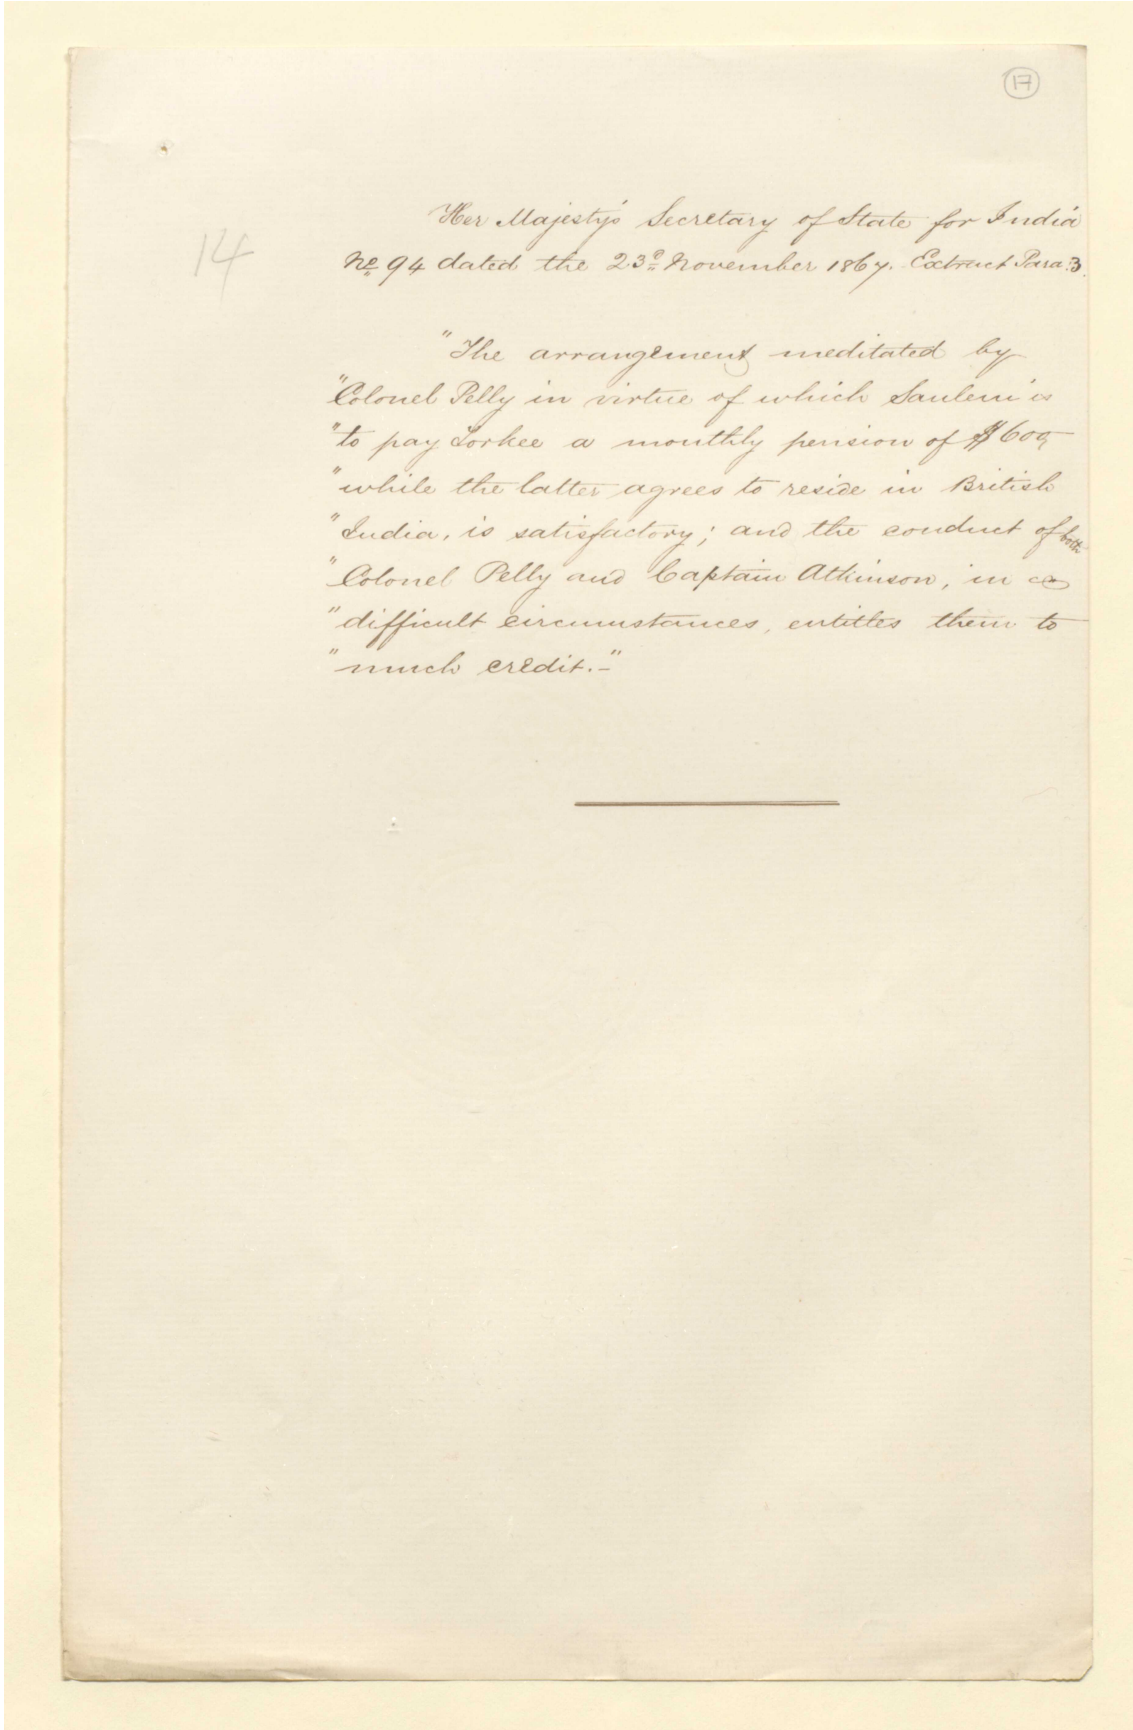 17
Her Majesty's Secretary of State for India
14
No 94 dated the 23d November 1867. Extract Para: 3.
"The arrangement meditated by
"Colonel Pelly in virtue of which Saulem is
"to pay Torkee a monthly pension of $600,
"while the latter agrees to reside in British
"India, is satisfactory; and the conduct of both
"Colonel Pelly and Captain Atkinson, in
"difficult circumstances, entitles them to
"much credit.–"